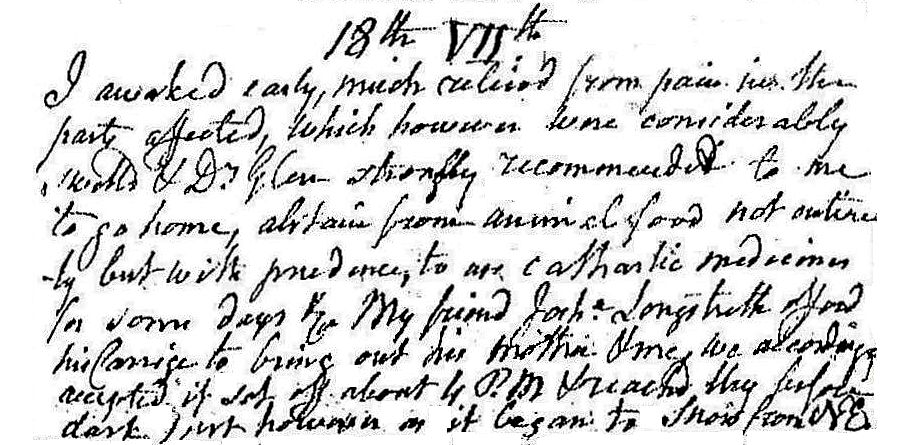 18th VIIth
I awaked early, much reliev'd from pain in the
parts affected, which however were considerably
swell'd & Dr. Glen strongly recommended to me
to go home, abstain from animal food not entire
ly but with prudence, to use cathartic medicines
for some days &c My friend Josha. Longstreth offerd
his Carriage to bring out his mother & me, we accordingly
accepted it set off about 4 P.M & reachd before
dark just however as it began to snow from NE.